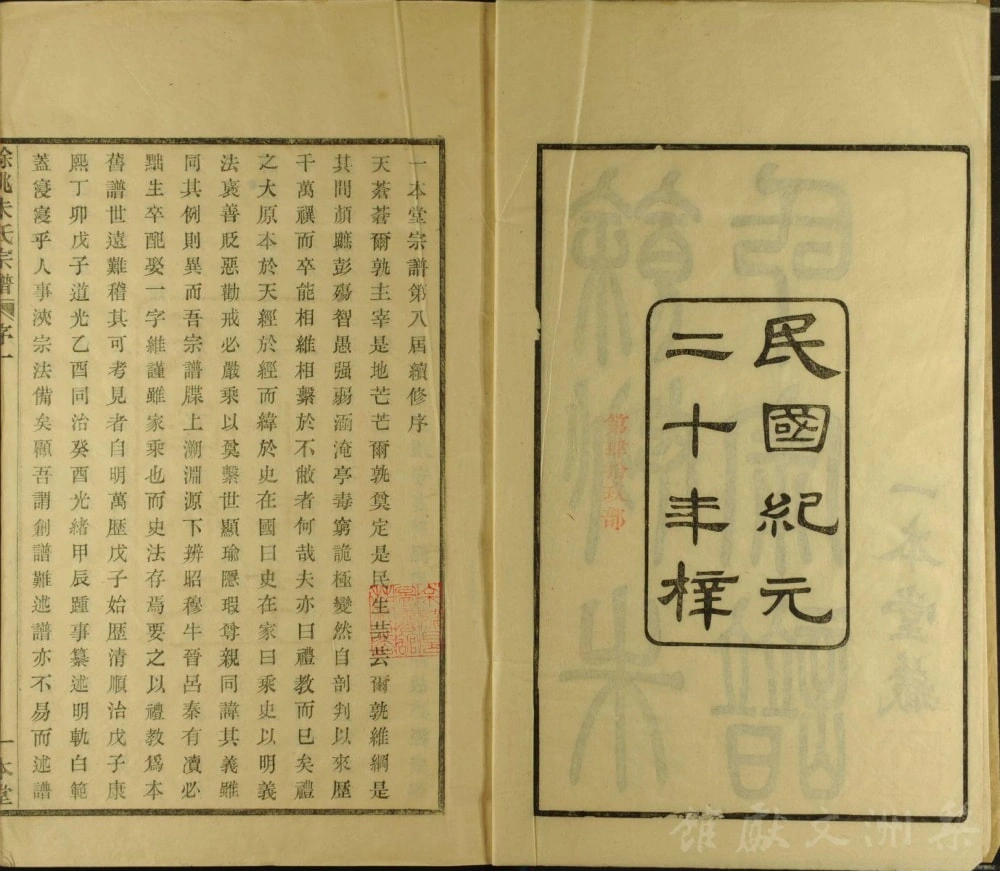 民國紀元
二十年梓
一本堂宗譜第八屆續修序
天蒼蒼爾孰主宰是地芒芒爾孰奠定是民生芸芸爾孰維綱是
其間顏蹠彭殤智愚强弱涵淹亭毒窮詭極變然自剖判以來歷
千萬禩而卒能相維相繫於不敝者何哉夫亦曰禮教而已矣禮
之大原本於天經於經而緯於史在國曰史在家曰乘史以明義
法襃善貶惡勸戒必嚴乘以奠繫世顯瑜隱瑕尊親同諱其義雖
同其例則異而吾宗譜牒上溯淵源下辨昭穆牛晉呂秦有瀆必
黜生卒配娶一字維謹雖家乘也而史法存焉要之以禮教爲本
舊譜世遠難稽其可考見者自明萬歷戊子始歷清順治戊子康
熙丁卯戊子道光乙酉同治癸酉光緒甲辰踵事纂述明軌白範
蓋寖寖乎人事浹宗法備矣顧吾謂創譜難述譜亦不易而述譜
餘姚朱氏宗譜 序一 一本堂
一本堂藏
梨洲文獻館